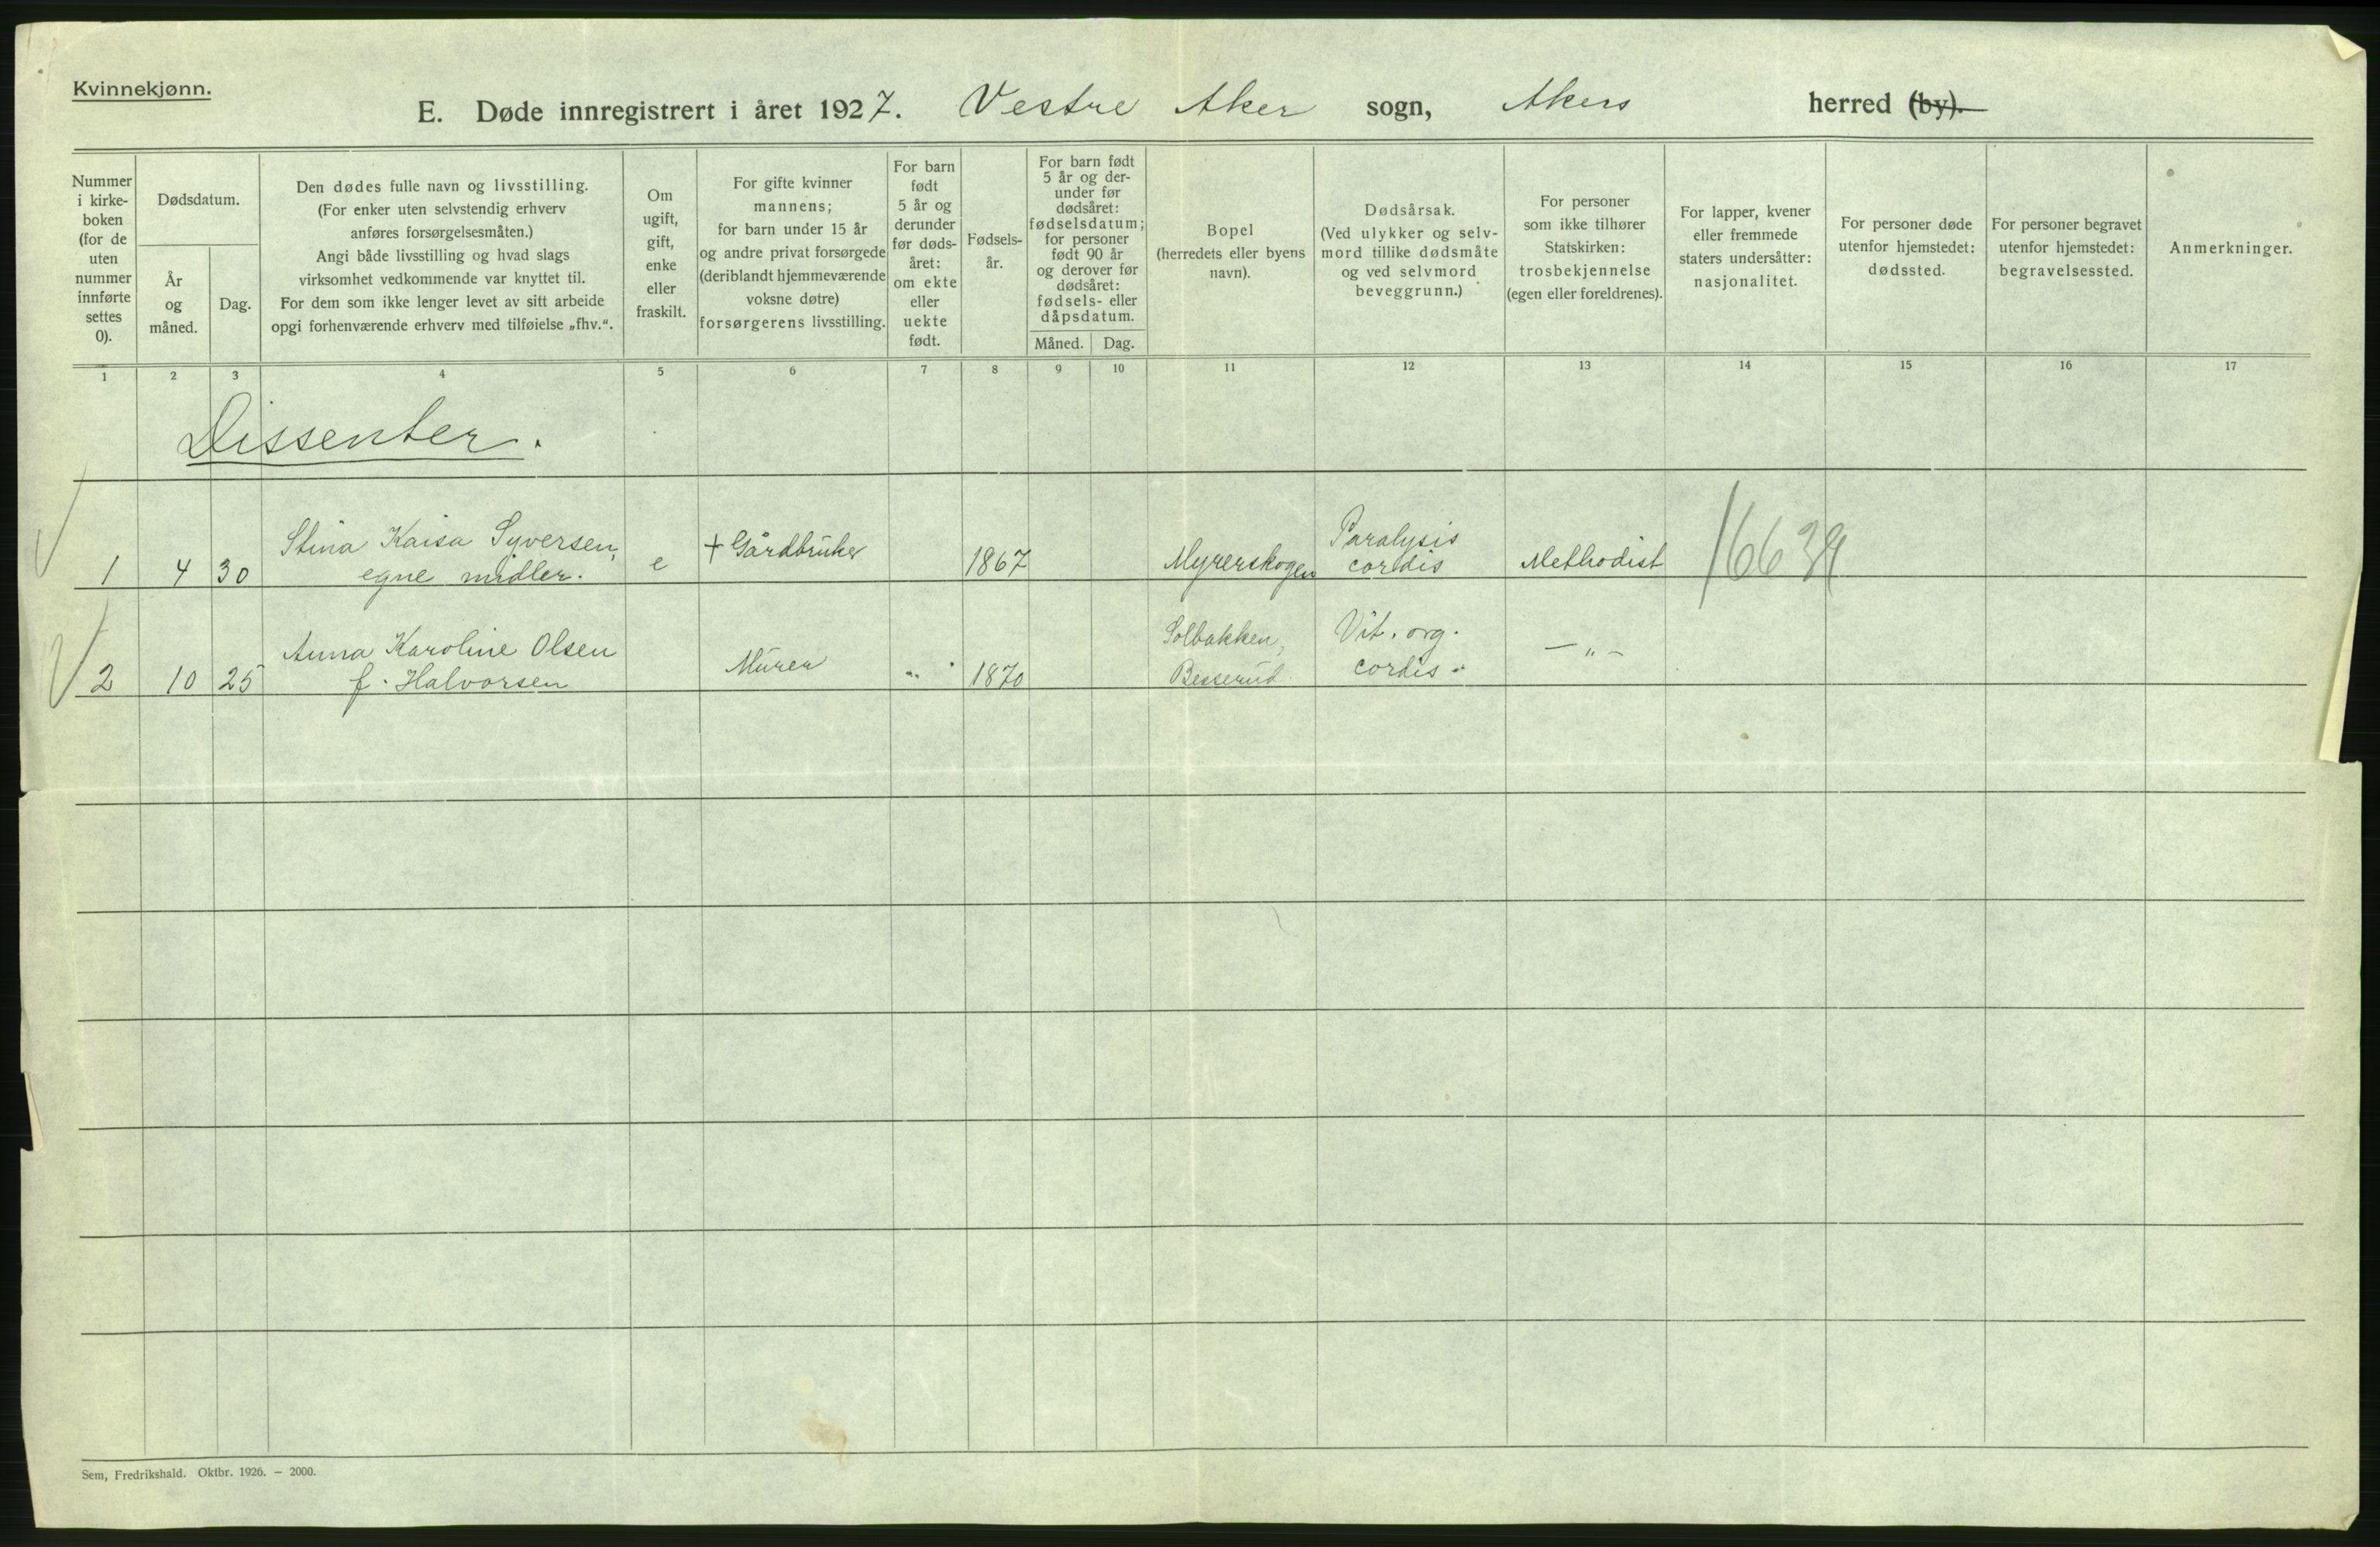 Kvinnekjønn.
E. Døde innregistrert i året 1927. Vestre Aker sogn, Akers herred (by).
Nummer
i kirke-
boken
(for de
uten
nummer
innførte
settes
0).
Dødsdatum.
År
og
måned.
Dag.
Den dødes fulle navn og livsstilling.
(For enker uten selvstendig erhverv
anføres forsørgelsesmåten.)
Angi både livsstilling og hvad slags
virksomhet vedkommende var knyttet til.
For dem som ikke lenger levet av sitt arbeide
opgi forhenværende erhverv med tilføielse „fhv.“.
Om
ugift,
gift,
enke
eller
fraskilt.
For gifte kvinner
mannens;
for barn under 15 år
og andre privat forsørgede
(deriblandt hjemmeværende
voksne døtre)
forsørgerens livsstilling.
For barn
født
5 år og
derunder
før døds-
året:
om ekte
eller
uekte
født.
Fødsels-
år.
For barn født
5 år og der-
under før
dødsåret:
fødselsdatum;
for personer
født 90 år
og derover før
dødsåret:
fødsels- eller
dåpsdatum.
Måned. Dag.
Bopel
(herredets eller byens
navn).
Dødsårsak.
(Ved ulykker og selv-
mord tillike dødsmåte
og ved selvmord
beveggrunn.)
For personer
som ikke tilhører
Statskirken:
trosbekjennelse
(egen eller foreldrenes).
For lapper, kvener
eller fremmede
staters undersåtter:
nasjonalitet.
For personer døde
utenfor hjemstedet:
dødssted.
For personer begravet
utenfor hjemstedet:
begravelsessted.
Anmerkninger.
1 2 3 4 5 6 7 8 9 10 11 12 13 14 15 16 17
Dissenter.
1 4 30
Stina Kaisa Syversen,
egne midler.
e
+ Gårdbruker
1867
Myrerskogen
Paralysis
cordis
Methodist
2 10 25
Anna Karoline Olsen
f. Halvorsen
Murer
"
1870
Solbakken,
Besserud
Vit. org.
cordis.
— „ —
Sem, Fredrikshald. Oktbr. 1926. — 2000.